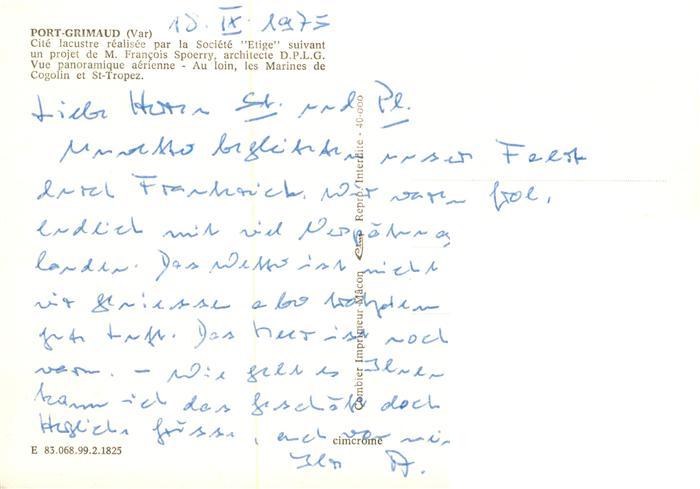 18. IX. 1975
PORT-GRIMAUD (Var)
Cité lacustre réalisée par la Société "Etige" suivant
un projet de M. François Spoerry, architecte D.P.L.G.
Vue panoramique aérienne - Au loin, les Marines de
Cogolin et St-Tropez.
Liebe Herren St. und Pl.
Unwetter begleiteten unser
durch Frankreich. Wir waren froh,
endlich mit viel Verspätung
landen. Das Wetter ist nicht
wir geniessen trotzdem
gute Luft. Das Meer ist noch
warm. - Wie geht es Ihnen
kann ich das Geschäft doch
Herzliche Grüsse, auch von
Ihr
Combier Imprimeur Mâcon Repro Interdite - 40-000
E 83.068.99.2.1825
cimcrome